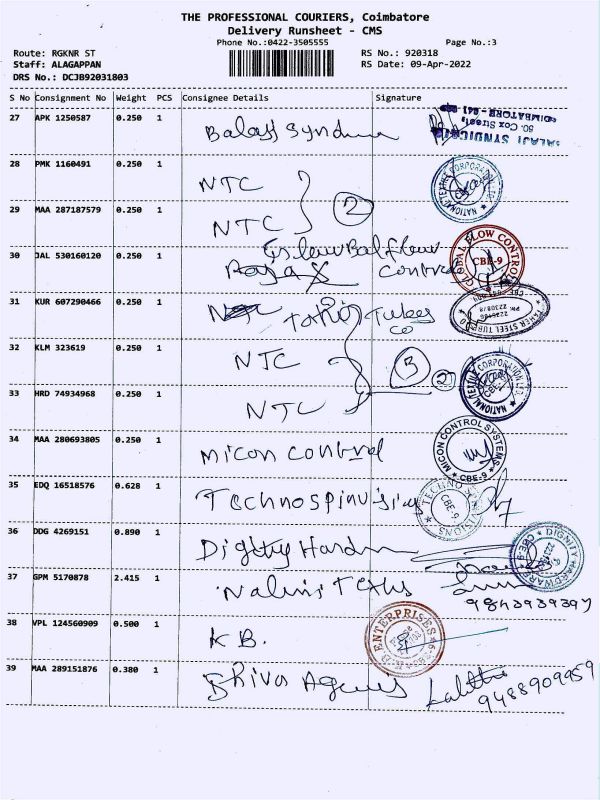 THE PROFESSIONAL COURIERS, Coimbatore
Delivery Runsheet - CMS
Phone No.:0422-3505555 Page No.:3
Route: RGKNR ST RS No.: 920318
Staff: ALAGAPPAN RS Date: 09-Apr-2022
DRS No.: DCJB92031803
S No Consignment No Weight PCS Consignee Details Signature
27 APK 1250587 0.250 1
28 PMK 1160491 0.250 1 NTC
29 MAA 287187579 0.250 1 NTC 2
30 JAL 530160120 0.250 1 Flow Control GLOBAL FLOW CONTROL CBE-9
31 KUR 607290466 0.250 1 Tubes co
32 KLM 323619 0.250 1 NTC 3 2
33 HRD 74934968 0.250 1 NTC
34 MAA 280693805 0.250 1 Micon Control MICON CONTROL SYSTEMS CBE-9
35 EDQ 16518576 0.628 1 TECHNO VISIONS CBE-9
36 DDG 4269151 0.890 1 DIGNITY HARDWARE CBE-9
37 GPM 5170878 2.415 1 9843939397
38 VPL 124560909 0.500 1 K B. ENTERPRISES
39 MAA 289151876 0.380 1 Shiva Agencies Lalitha
9488909959
BALAJI SYNDICATE
50, Cox Street,
COIMBATORE - 641
NATIONAL TEXTILE CORPORATION LTD.
NATIONAL TEXTILE CORPORATION LTD.